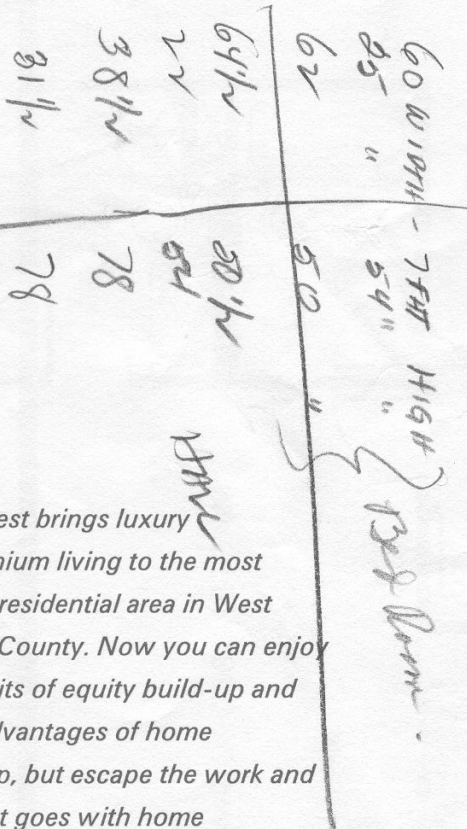 60 WIDTH - 7 FHT HIGH
25 " 54" "
Bed Room
62 50 "
64 1/2 50 1/2
54
38 1/2 78
31 1/2 78
est brings luxury
nium living to the most
residential area in West
County. Now you can enjoy
its of equity build-up and
dvantages of home
p, but escape the work and
t goes with home